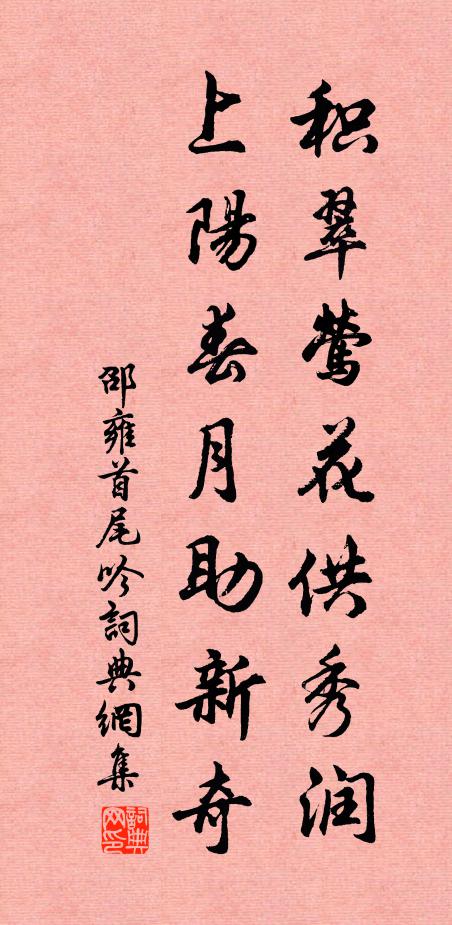 积翠莺花供秀润
上陽春月助新奇
邵雍首尾吟詞典網集
詞典网印